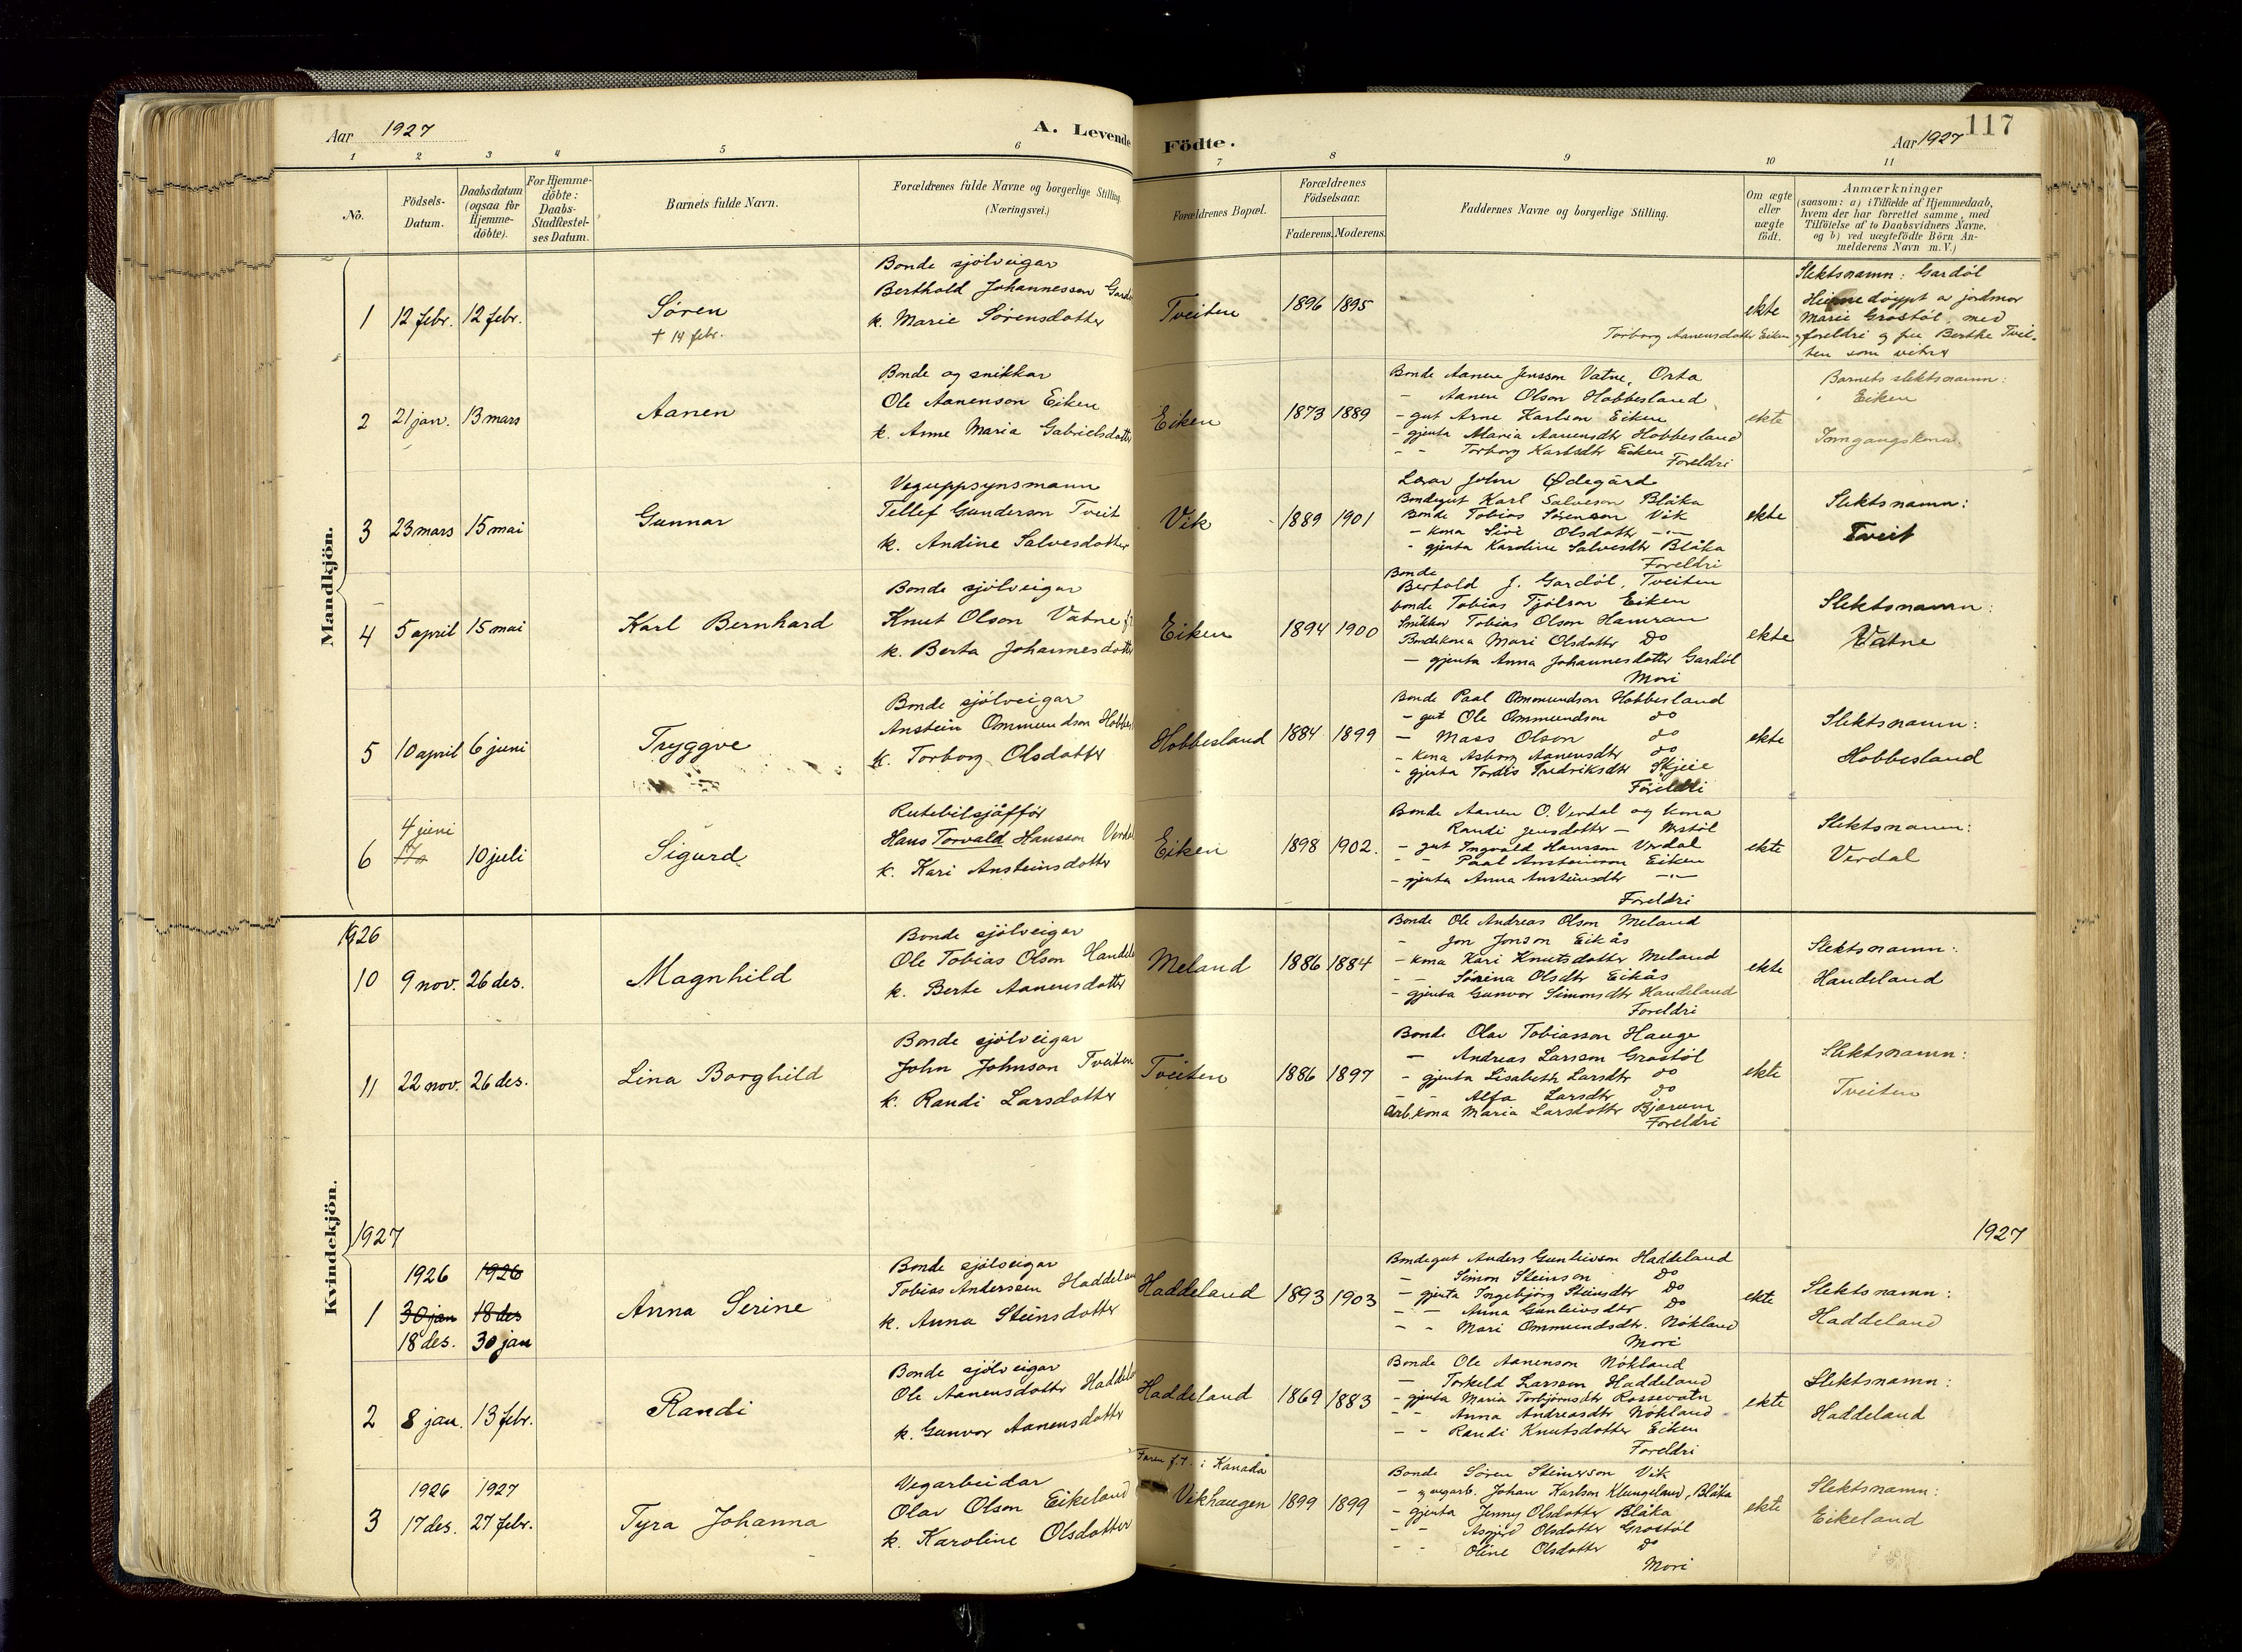 Aar 1927
A. Levende
1 2 3 4 5 6
No.
Födsels-
Datum.
Daabsdatum
(ogsaa for
Hjemme-
döbte).
For Hjemme-
döbte:
Daabs-
Stadfæstel-
ses Datum.
Barnets fulde Navn.
Forældrenes fulde Navne og borgerlige Stilling
(Næringsvei.)
Mandkjön.
1 12 febr. 12 febr.
Søren
† 14 febr.
Bonde sjölveigar
Berthold Johannesson
k. Marie Sörensdotter
2 21 jan. 13 mars
Aanen
Bonde og snikkar
Ole Aanenson Eiken
k. Anne Maria Gabrielsdotter
3 23 mars 15 mai
Gunnar
Veguppsynsmann
Tellef Gunderson Tveit
k. Andine Salvesdotter
4 5 april 15 mai
Karl Bernhard
Bonde sjölveigar
Knut Olson Vatne
k. Berta Johannesdotter
5 10 april 6 juni
Tryggve
Bonde sjölveigar
Anstein Ommundson
k. Torborg Olsdotter
4 juni
6 10 juli
Sigurd
Rutebilsjåffør
Hans Torvald Hansson
k. Kari Ansteinsdotter
1926
10 9 nov. 26 des.
Magnhild
Bonde sjölveigar
Ole Tobias Olson
k. Berte Aanensdotter
11 22 nov. 26 des.
Lina Borghild
Bonde sjölveigar
John Johnson Tveiten
k. Randi Larsdotter
Kvindekjön.
1927
1926 1926
1 30 jan 18 des
18 des. 30 jan
Anna Serine
Bonde sjölveigar
Tobias Anderssen
k. Anna Steinsdotter
2 8 jan. 13 febr.
Randi
Bonde sjölveigar
Ole Aanensdotter
k. Gunvor Aanensdotter
1926 1927
3 17 des. 27 febr.
Tyra Johanna
Vegarbeidar
Olav Olson Eikeland
k. Karoline Olsdotter
Födte.
Aar 1927
117
7 8 9 10 11
Forældrenes Bopæl.
Forældrenes
Födselsaar.
Faderens. Moderens.
Faddernes Navne og borgerlige Stilling.
Om ægte
eller
uægte
födt.
Anmærkninger
(saasom: a) i Tilfælde af Hjemmedaab,
hvem der har forrettet samme, med
Tilföielse af to Daabsvidners Navne,
og b) ved uægtefödte Börn An-
melderens Navn m. V.)
Tveiten 1896 1895
Torborg Aanensdotter Eiken
ekte
Slektsnamn: Gardöl
Heimedöypt a jordmor
Marie Grostöl med
foreldri og fru Berthe Tvei-
ten som vitner
Eiken 1873 1889
Bonde Aanen Jensson Vatne,
- Aanen Olson Hobbesland
- gut Arne Karlson Eiken
- gjenta Maria Aanensdtr Hobbesland
- - Torborg Karlsdtr Eiken
Foreldri
ekte
Barnets slektsnamn:
Eiken
Inngangskona
Vik 1889 1901
Lærar John Ødegård
Bondegut Karl Salveson Blåka
Bonde Tobias Sörenson Vik
- kona Siri Olsdotter -"-
- gjenta Karoline Salvesdtr Blåka
Foreldri
ekte
Slektsnamn:
Tveit
Eiken 1894 1900
Bonde
Berthold J. Gardöl, Tveiten
bonde Tobias Tjölson Eiken
Snikkar Tobias Olson Hamran
Bondekona Mari Olsdotter Do
- gjenta Anna Johannesdotter Gardöl
Mori
ekte
Slektsnamn:
Vatne
Hobbesland 1884 1899
Bonde Paal Ommundson Hobbesland
- gut Ole Ommundson do
- Mass Olson do
- kona Asborg Aanensdtr do
- gjenta Tordis Fredriksdtr Skjeie
Foreldri
ekte
Slektsnamn:
Hobbesland
Eiken 1898 1902.
Bonde Aanen O. Verdal og kona
Randi Jensdotter -
- gut Ingvald Hansson Verdal
- - Paal Ansteinson Eiken
- gjenta Anna Ansteinsdtr -"-
Foreldri
ekte
Slektsnamn:
Verdal
Meland 1886 1884
Bonde Ole Andreas Olson Meland
- Jon Jonson Eikås
- kona Kari Knutsdotter Meland
- - Sörina Olsdtr Eikås
- gjenta Gunvor Simonsdtr Handeland
Foreldri
ekte
Slektsnamn:
Handeland
Tveiten 1886 1897
Bonde Olav Tobiasson Hauge
- Andreas Larsson Grostöl
- gjenta Lisabeth Larsdtr do
- - Alfa Larsdtr do
Arb. kona Maria Larsdotter Bjorum
Foreldri
ekte
Slektsnamn:
Tveiten
1927
Haddeland 1893 1903
Bondegut Anders Gunleivson Haddeland
- Simon Steinson Do
- gjenta Ingebjörg Steinsdtr Do
- - Anna Gunleivsdtr Do
- - Mari Ommundsdtr. Nökland
Mori
ekte
Slektsnamn:
Haddeland
Haddeland 1869 1883
Bonde Ole Aanenson Nökland
- Torkeld Larsson Haddeland
- gjenta Maria Torbjörnsdtr Rossevatn
- - Anna Andreasdtr Nökland
- - Randi Knutsdotter Eiken
Foreldri
ekte
Slektsnamn:
Haddeland
Faren f.t. i Kanada
Vikhaugen 1899 1899
Bonde Sören Steinerson Vik
- vegarb. Johan Karlson Klungeland, Blåka
- gjenta Jenny Olsdotter Blåka
- - Asgjerd Olsdotter Grostöl
- - Oline Olsdotter Do
Mori
ekte
Slektsnamn:
Eikeland